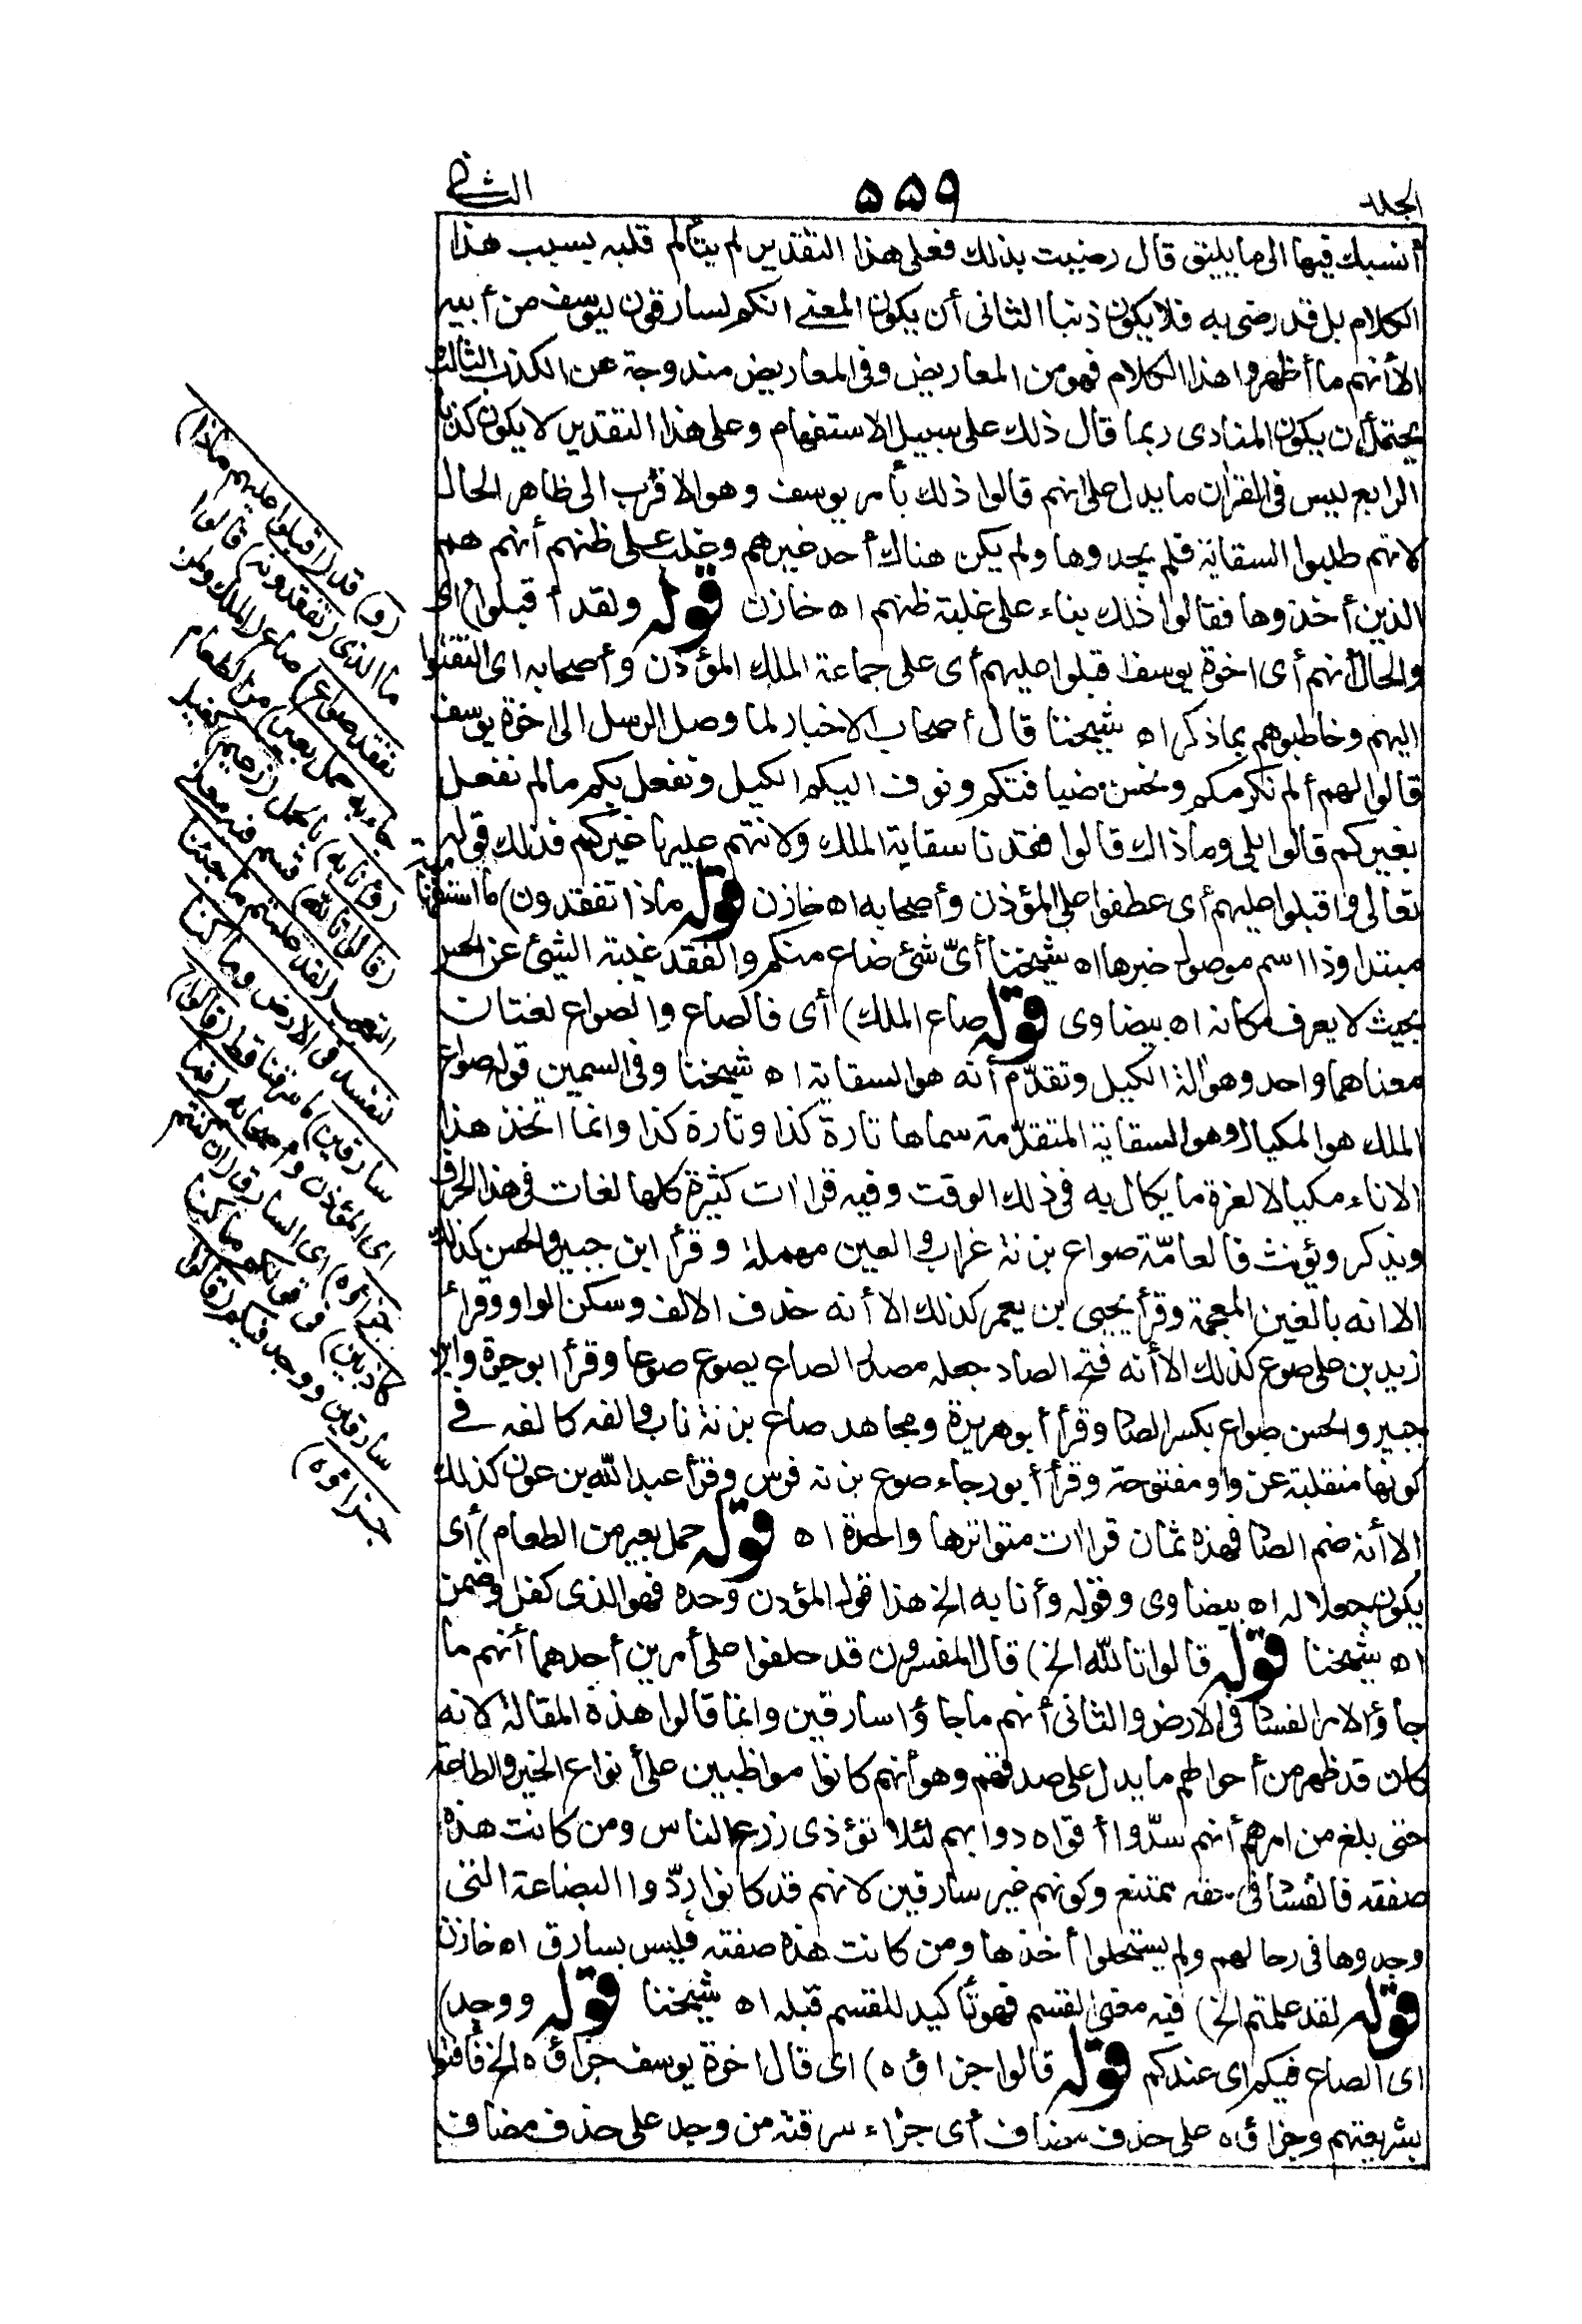 الجلد ٥٥٩ الثانى
أنسبك فيها الى ما يليق قال رضيت بذلك فعلى هذا التقدير لم يتألم قلبه بسبب هذا
الكلام بل قد رضى به فلا يكون ذنبا الثانى أن يكون المعنى انكم لسارقون ليوسف من أبيه
الا أنهم ما أظهروا هذا الكلام فهو من المعاريض وفى المعاريض مندوحة عن الكذب الثالث
يحتمل أن يكون المنادى ربما قال ذلك على سبيل الاستفهام وعلى هذا التقدير لا يكون كذبا
الرابع ليس فى القران ما يدل على انهم قالوا ذلك بأمر يوسف وهو الاقرب الى ظاهر الحال
لانهم طلبوا السقاية فلم يجدوها ولم يكن هناك أحد غيرهم وغلب على ظنهم أنهم هم
الذين أخذوها فقالوا ذلك بناء على غلبة ظنهم اه خازن قوله ولقد أقبلوا) اى
والحال أنهم أى اخوة يوسف اقبلوا عليهم أى على جماعة الملك المؤذن وأصحابه اى التفتوا
اليهم وخاطبوهم بما ذكر اه شيخنا قال أصحاب الاخبار لما وصل الرسل الى اخوة يوسف
قالوا لهم ألم نكرمكم ونحسن ضيافتكم ونوف اليكم الكيل ونفعل بكم ما لم نفعل
بغيركم قالوا بلى وما ذاك قالوا فقدنا سقاية الملك ولا نتهم عليها غيركم فذلك قوله
تعالى واقبلوا عليهم أى عطفوا على المؤذن وأصحابه اه خازن قوله ماذا تفقدون) ما استفهامية
مبتدا وذا اسم موصول خبرها اه شيخنا أىّ شئ ضاع منكم والفقد غيبة الشئ عن الحس
بحيث لا يعرف مكانه اه بيضاوى قوله صاع الملك) أى فالصاع والصواع لغتان
معناهما واحد وهو الة الكيل وتقدّم أنه هو السقاية اه شيخنا وفى السمين قوله صواع
الملك هو المكيال وهو السقاية المتقدّمة سماها تارة كذا وتارة كذا وانما اتخذ هذا
الاناء مكيالا لعزة ما يكال به فى ذلك الوقت وفيه قراات كثيرة كلها لغات فى هذا الحرف
ويذكر ويؤنث فالعامّة صواع بزنة غراب والعين مهملة وقرأ ابن جبير والحسن كذلك
الا انه بالغين المعجمة وقرأ يحيى بن يعمر كذلك الا أنه حذف الالف وسكن الواو وقرأ
زيد بن على صوع كذلك الا أنه فتح الصاد جعله مصدر الصاع يصوع صوعا وقرأ ابو حيوة وابن
جبير والحسن صواع بكسر الصاد وقرأ أبو هريرة ومجاهد صاع بزنة ناب والفه كالفه فى
كونها منقلبة عن واو مفتوحة وقرأ أبو رجاء صوع بزنة فرس وقرأ عبد الله بن عون كذلك
الا أنه ضم الصاد فهذه ثمان قراات متواترها واحدة اه قوله حمل بعير من الطعام) أى
يكون جعلا له اه بيضاوى وقوله وأنا به الخ هذا قول المؤذن وحده فهو الذى كفل وضمن
اه شيخنا قوله قالوا تالله الخ) قال المفسرون قد حلفوا على أمرين أحدهما أنهم ما
جاؤا لامر الفساد فى الارض والثانى أنهم ما جاؤا سارقين وانما قالوا هذه المقالة لانه
كان قد ظهر من أحوالهم ما يدل على صدقهم وهو أنهم كانوا مواظبين على أنواع الخير والطاعة
حتى بلغ من امرهم أنهم سدّوا أفواه دوابهم لئلا تؤذى زرع الناس ومن كانت هذه
صفته فالفساد فى حقه ممتنع وكونهم غير سارقين لانهم قد كانوا ردّوا البضاعة التى
وجدوها فى رحالهم ولم يستحلوا أخذها ومن كانت هذه صفته فليس بسارق اه خازن
قوله لقد علمتم الخ) فيه معنى القسم فهو تأكيد للقسم قبله اه شيخنا قوله ووجد)
اى الصاع فيكم اى عندكم قوله قالوا جزاؤه) اى قال اخوة يوسف جزاؤه الخ فأفتوا
بشريعتهم وجزاؤه على حذف مضاف أى جزاء سرقته من وجد على حذف مضاف
(و) قد (اقبلوا عليهم ماذا)
ما الذى (تفقدونه) قالوا
نفقد صواع) صاع (الملك ولمن
جاء به حمل بعير) من الطعام
(وأنا به) بالحمل (زعيم) كفيل
(قالوا تالله) قسم فيه معنى
التعجب (لقد علمتم ما جئنا
لنفسد فى الارض وما كنا
سارقين) ما سرقنا قط (قالوا)
اى المؤذن واصحابه (فما
جزاؤه) اى السارق (ان كنتم
كاذبين) فى قولكم ما كنا
سارقين ووجد فيكم (قالوا
جزاؤه)